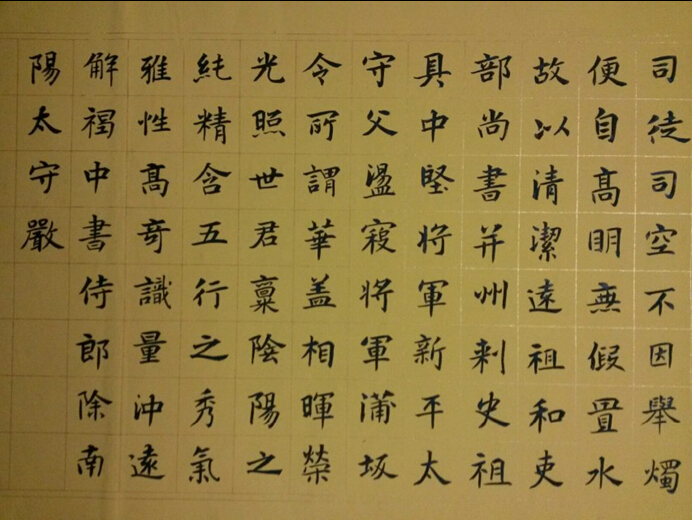 司徒司空不因舉燭
便自高明無假置水
故以清潔遠祖和吏
部尚書并州刺史祖
具中堅將軍新平太
守父盪寇將軍蒲坂
令所謂華盖相暉榮
光照世君稟陰陽之
純精含五行之秀氣
雅性高奇識量沖遠
解褐中書侍郎除南
陽太守嚴